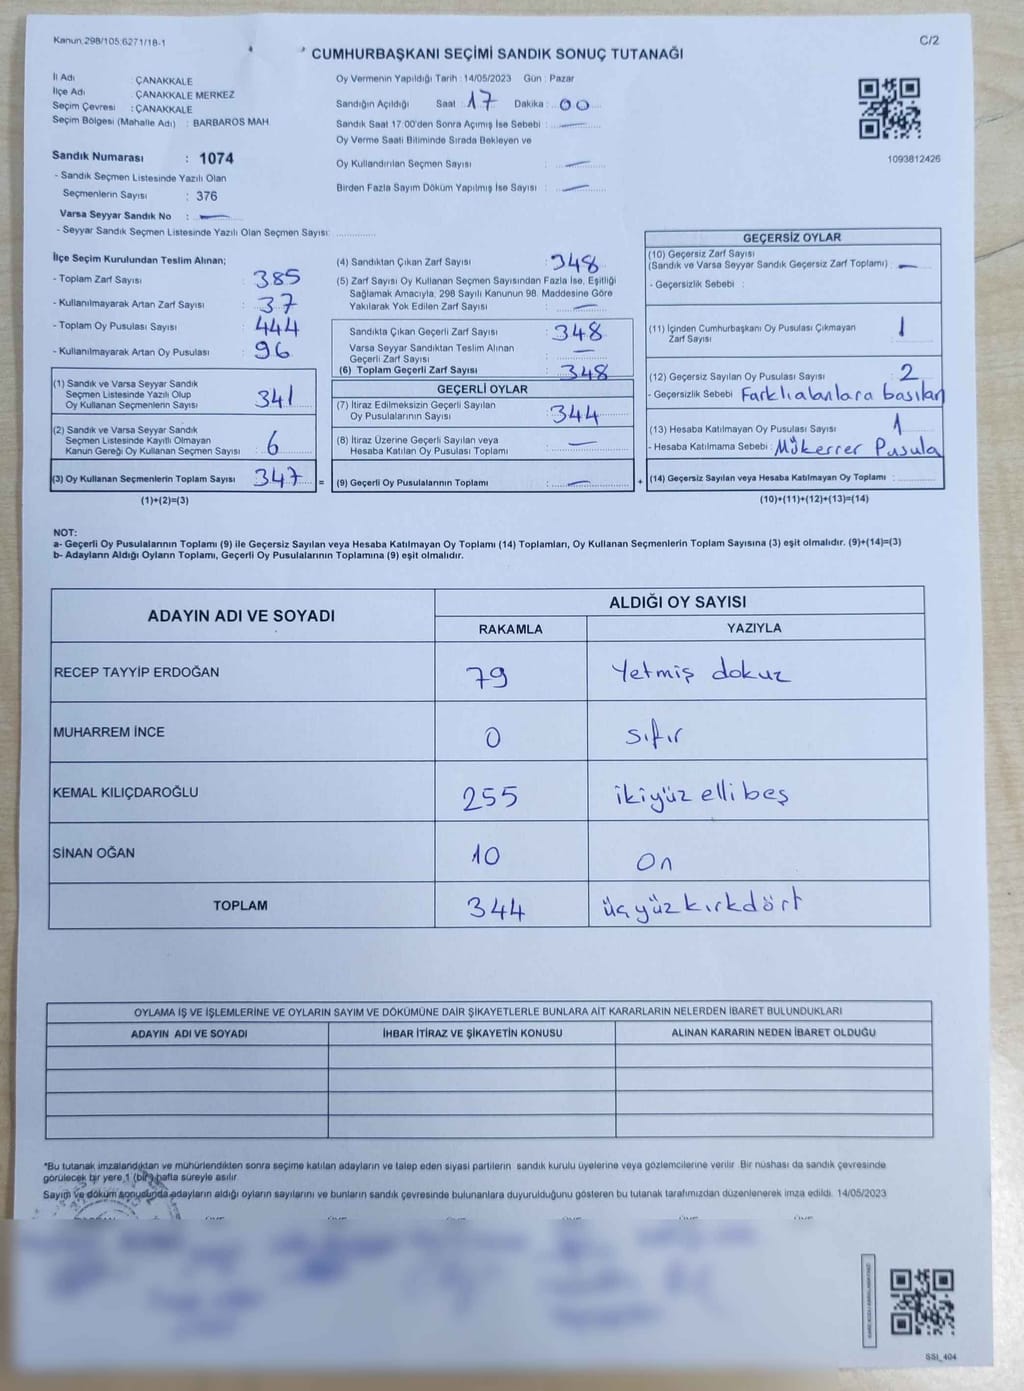 Kanun 298/105 6271/18-1
C/2
CUMHURBAŞKANI SEÇİMİ SANDIK SONUÇ TUTANAĞI
İl Adı : ÇANAKKALE
İlçe Adı : ÇANAKKALE MERKEZ
Seçim Çevresi : ÇANAKKALE
Seçim Bölgesi (Mahalle Adı) : BARBAROS MAH.
Oy Vermenin Yapıldığı Tarih : 14/05/2023 Gün : Pazar
Sandığın Açıldığı Saat 17 Dakika : 00
Sandık Saat 17:00'den Sonra Açımış İse Sebebi : —
Oy Verme Saati Bitiminde Sırada Bekleyen ve
Oy Kullandırılan Seçmen Sayısı : —
Birden Fazla Sayım Döküm Yapılmış İse Sayısı : —
1093812426
Sandık Numarası : 1074
- Sandık Seçmen Listesinde Yazılı Olan
Seçmenlerin Sayısı : 376
Varsa Seyyar Sandık No : —
- Seyyar Sandık Seçmen Listesinde Yazılı Olan Seçmen Sayısı:
İlçe Seçim Kurulundan Teslim Alınan;
- Toplam Zarf Sayısı : 385
- Kullanılmayarak Artan Zarf Sayısı : 37
- Toplam Oy Pusulası Sayısı : 444
- Kullanılmayarak Artan Oy Pusulası : 96
(1) Sandık ve Varsa Seyyar Sandık
Seçmen Listesinde Yazılı Olup
Oy Kullanan Seçmenlerin Sayısı : 341
(2) Sandık ve Varsa Seyyar Sandık
Seçmen Listesinde Kayıtlı Olmayan
Kanun Gereği Oy Kullanan Seçmen Sayısı : 6
(3) Oy Kullanan Seçmenlerin Toplam Sayısı : 347 =
(1)+(2)=(3)
(4) Sandıktan Çıkan Zarf Sayısı : 348
(5) Zarf Sayısı Oy Kullanan Seçmen Sayısından Fazla İse, Eşitliği
Sağlamak Amacıyla, 298 Sayılı Kanunun 98. Maddesine Göre
Yakılarak Yok Edilen Zarf Sayısı : —
Sandıkta Çıkan Geçerli Zarf Sayısı : 348
Varsa Seyyar Sandıktan Teslim Alınan
Geçerli Zarf Sayısı : —
(6) Toplam Geçerli Zarf Sayısı : 348
GEÇERLİ OYLAR
(7) İtiraz Edilmeksizin Geçerli Sayılan
Oy Pusulalarının Sayısı : 344
(8) İtiraz Üzerine Geçerli Sayılan veya
Hesaba Katılan Oy Pusulası Toplamı : —
(9) Geçerli Oy Pusulalarının Toplamı : — +
GEÇERSİZ OYLAR
(10) Geçersiz Zarf Sayısı
(Sandık ve Varsa Seyyar Sandık Geçersiz Zarf Toplamı) : —
- Geçersizlik Sebebi :
(11) İçinden Cumhurbaşkanı Oy Pusulası Çıkmayan
Zarf Sayısı : 1
(12) Geçersiz Sayılan Oy Pusulası Sayısı : 2
- Geçersizlik Sebebi : Farklı alanlara basılan
(13) Hesaba Katılmayan Oy Pusulası Sayısı : 1
- Hesaba Katılmama Sebebi : Mükerrer Pusula
(14) Geçersiz Sayılan veya Hesaba Katılmayan Oy Toplamı :
(10)+(11)+(12)+(13)=(14)
NOT:
a- Geçerli Oy Pusulalarının Toplamı (9) ile Geçersiz Sayılan veya Hesaba Katılmayan Oy Toplamı (14) Toplamları, Oy Kullanan Seçmenlerin Toplam Sayısına (3) eşit olmalıdır. (9)+(14)=(3)
b- Adayların Aldığı Oyların Toplamı, Geçerli Oy Pusulalarının Toplamına (9) eşit olmalıdır.
ADAYIN ADI VE SOYADI ALDIĞI OY SAYISI
RAKAMLA YAZIYLA
RECEP TAYYİP ERDOĞAN 79 Yetmiş dokuz
MUHARREM İNCE 0 sıfır
KEMAL KILIÇDAROĞLU 255 ikiyüz elli beş
SİNAN OĞAN 10 On
TOPLAM 344 üçyüzkırkdört
OYLAMA İŞ VE İŞLEMLERİNE VE OYLARIN SAYIM VE DÖKÜMÜNE DAİR ŞİKAYETLERLE BUNLARA AİT KARARLARIN NELERDEN İBARET BULUNDUKLARI
ADAYIN ADI VE SOYADI İHBAR İTİRAZ VE ŞİKAYETİN KONUSU ALINAN KARARIN NEDEN İBARET OLDUĞU
*Bu tutanak imzalandıktan ve mühürlendikten sonra seçime katılan adayların ve talep eden siyasi partilerin sandık kurulu üyelerine veya gözlemcilerine verilir. Bir nüshası da sandık çevresinde
görülecek bir yere 1 (bir) hafta süreyle asılır.
Sayım ve döküm sonucunda adayların aldığı oyların sayılarını ve bunların sandık çevresinde bulunanlara duyurulduğunu gösteren bu tutanak tarafımızdan düzenlenerek imza edildi. 14/05/2023
SSI_404